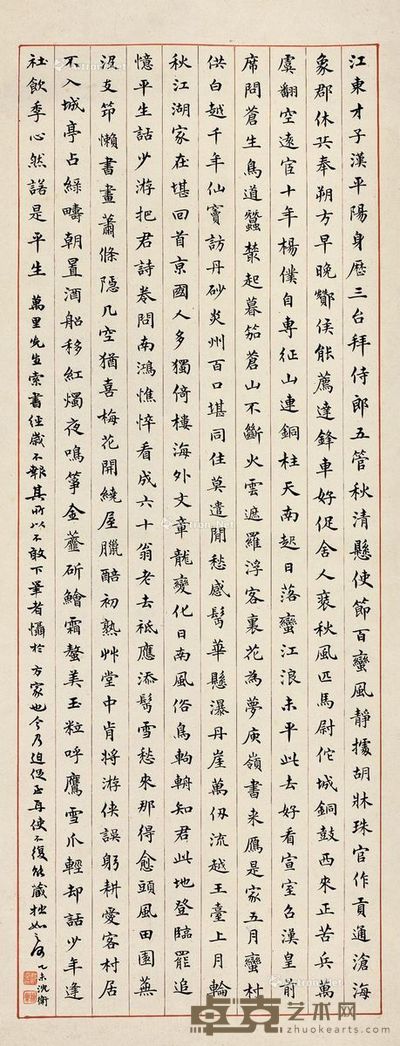 江東才子漢平陽身歷三台拜侍郎五管秋清懸使節百蠻風靜據胡牀珠官作貢通滄海
象郡休兵奉朔方早晚酇侯能薦達鋒車好促舍人裝秋風匹馬尉佗城銅鼓西來正苦兵萬
虞翻空遠宦十年楊僕自專征山連銅柱天南起日落蠻江浪未平此去好看宣室召漢皇前
席問蒼生鳥道蠶叢起暮笳蒼山不斷火雲遮羅浮客裏花為夢庾嶺書來鴈是家五月蠻村
供白越千年仙竇訪丹砂炎州百口堪同住莫遣閒愁感鬂華懸瀑丹崖萬仞流越王臺上月輪
秋江湖家在堪回首京國人多獨倚樓海外文章龍變化日南風俗鳥鉤輈知君此地登臨罷追
憶平生話少游把君詩卷問南鴻憔悴看成六十翁老去祗應添髩雪愁來那得愈頭風田園蕪
沒支笻懶書畫蕭條隱几空猶喜梅花開繞屋臘醅初熟艸堂中肯將游俠誤躬耕愛客村居
不入城亭占綠疇朝置酒船移紅燭夜鳴箏金虀斫鱠霜螯美玉粒呼鷹雪爪輕却話少年逢
社飲季心然諾是平生
萬里先生索書經歲不報其所以不敢下筆者懾於方家也今乃迫促正再使不復能藏拙如之何
乙未沈衛
艺术网
zhuokearts.com